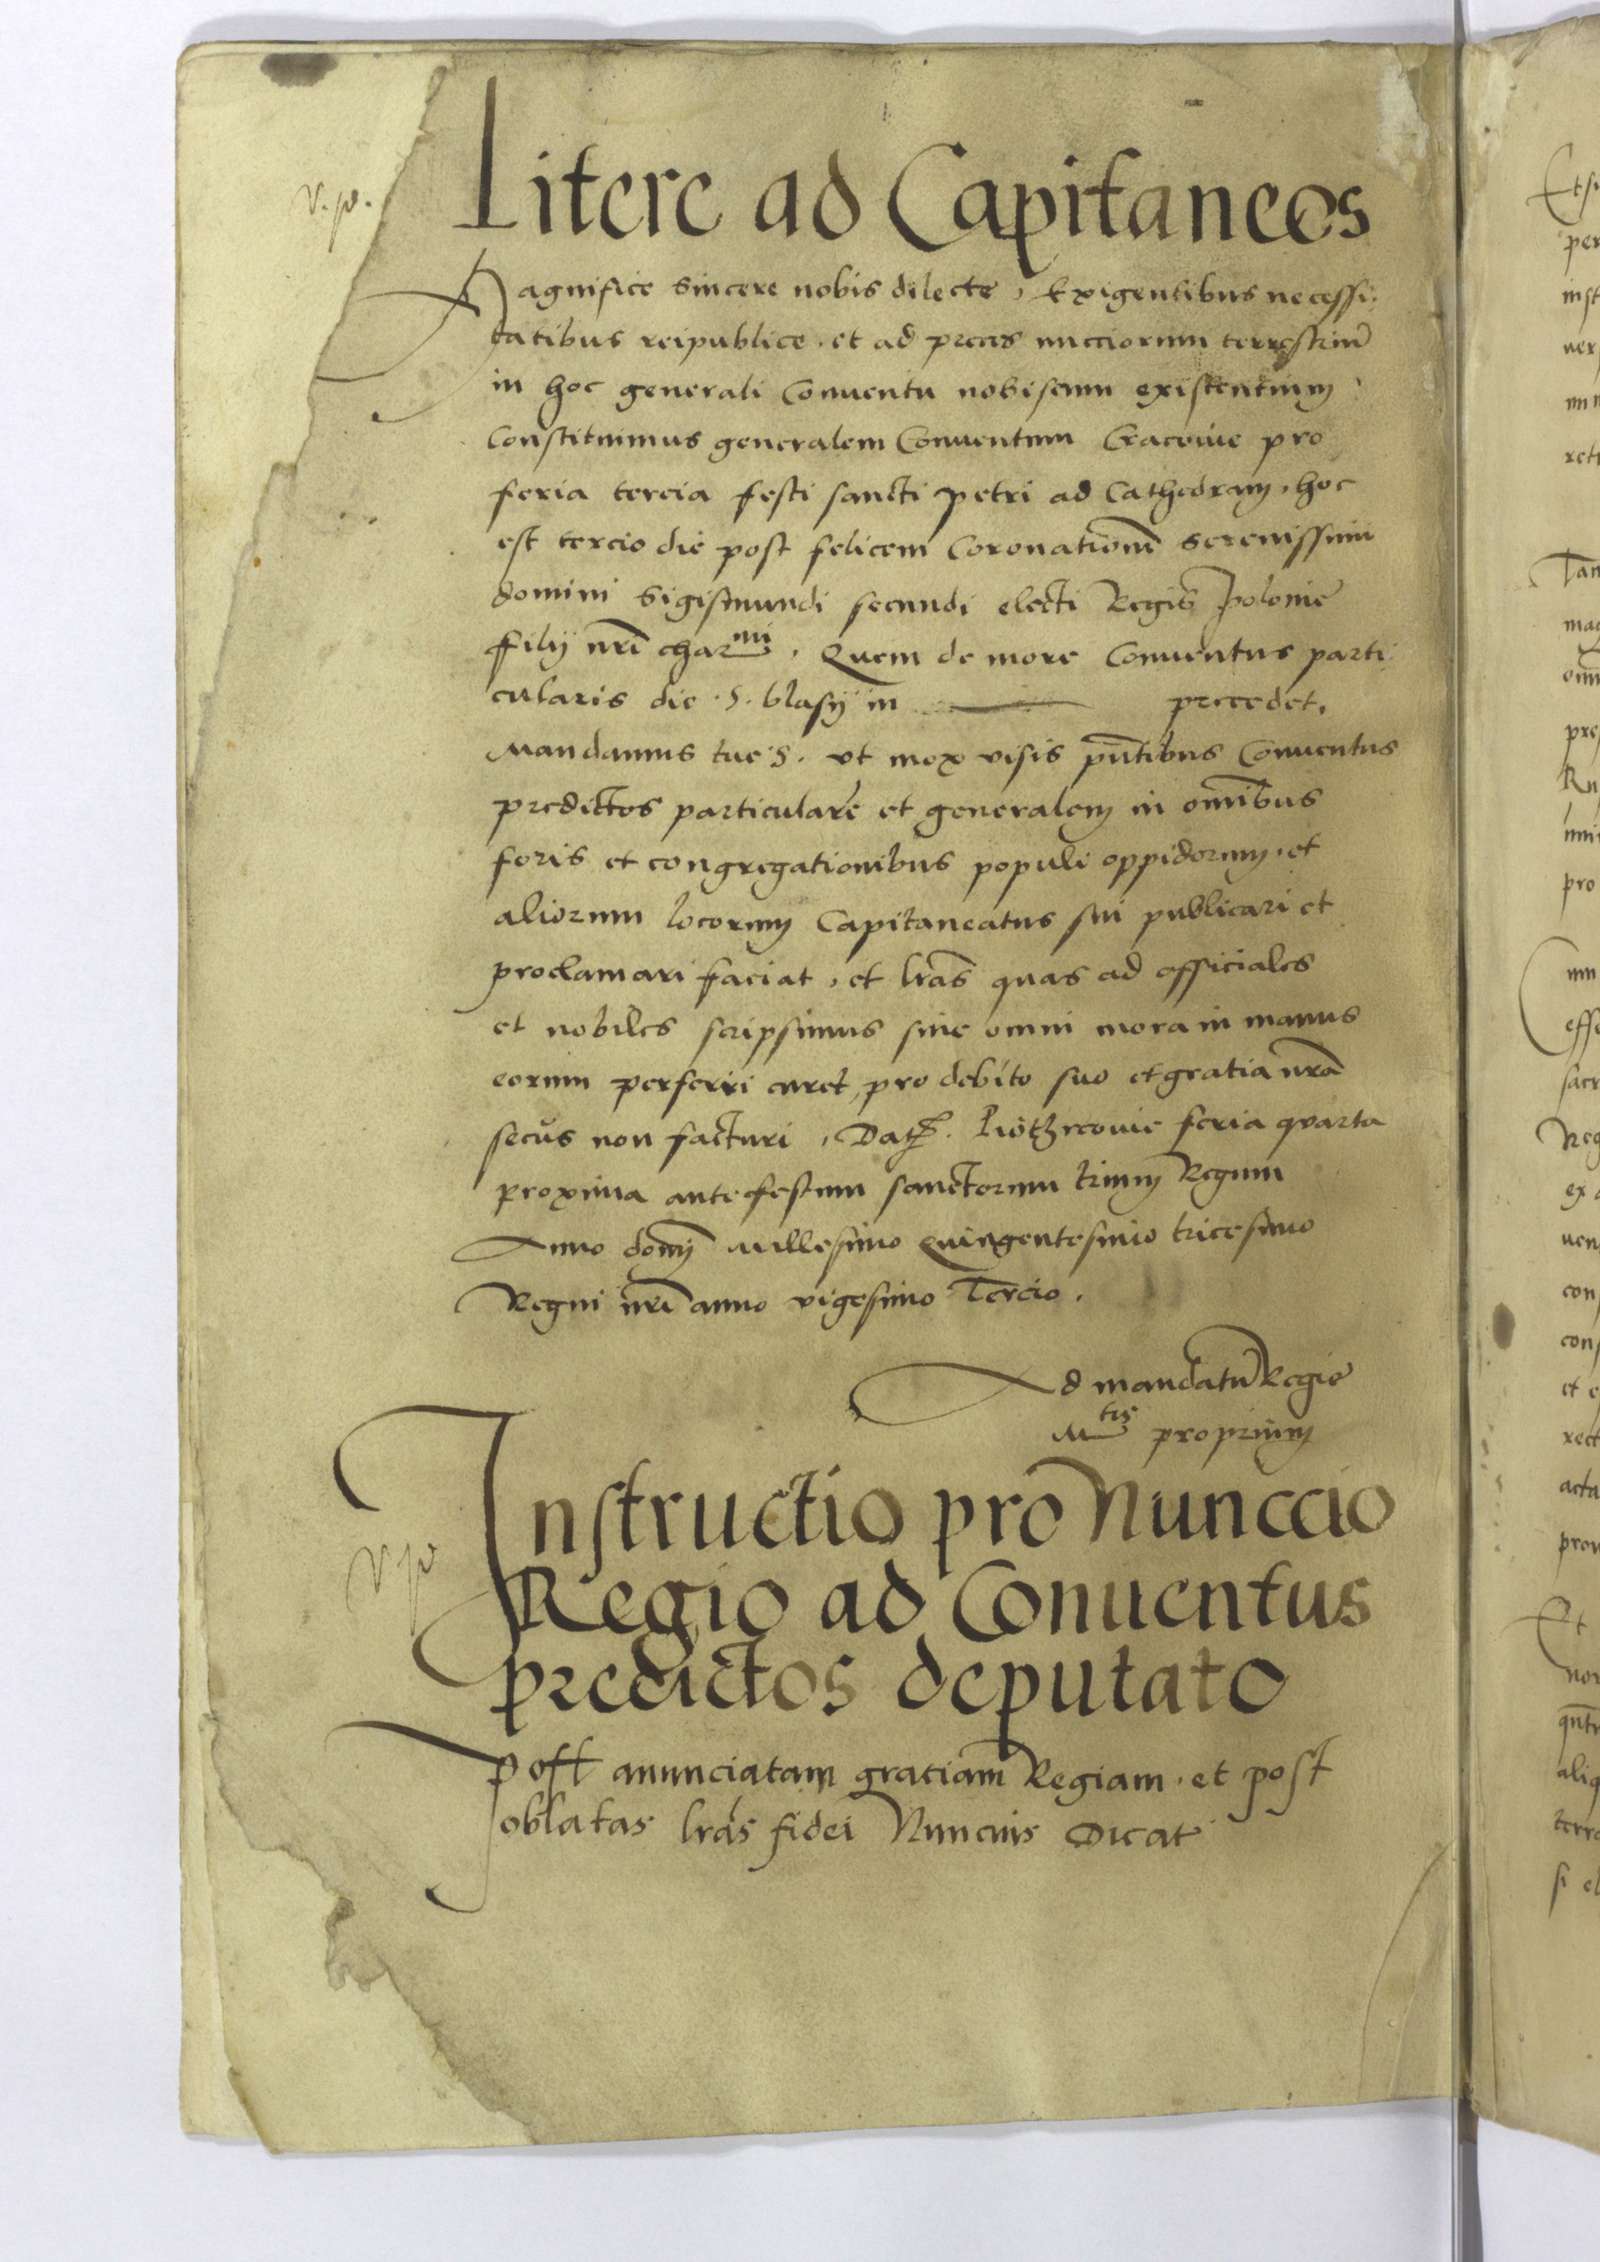 v. p.
Litere ad Capitaneos
Magnifice sincere nobis dilecte, Exigentibus necessi:
tatibus reipublice . et ad preces nucciorum terrestriū
in hoc generali Conuentu nobiscum existentium,
Constituimus generalem Conuentum Cracouie pro
feria tercia festi sancti petri ad Cathedram, hoc
est tercio die post felicem Coronationē serenissimi
domini Sigismundi secundi electi Regis Polonie
filij nr̄i charmi, Quem de more Conuentus parti
cularis die .S. blasij in — precedet,
Mandamus tue S. vt mox visis pūtibus Conuentus
predictos particularē et generalem in om̄ibus
foris et congregationibus populi oppidorum, et
aliorum locorum Capitaneatus sui publicari et
proclamari faciat, et lr̄as quas ad officiales
et nobiles scripsimus sine omni mora in manus
eorum perferri curet, pro debito suo et gratia nr̄a
secus non facturi, Dat. Piotrcouie feria quarta
proxima ante festum sanctorum trium Regum
Anno domī Millesimo Quingentesimo tricesimo
Regni nr̄i anno vigesimo Tercio.
Ad mandatū Regie
Mtis proprium
v p
Instructio pro Nunccio
Regio ad Conuentus
predictos deputato
Post anunciatam gratiam Regiam, et post
oblatas lr̄as fidei Nuncius Dicat